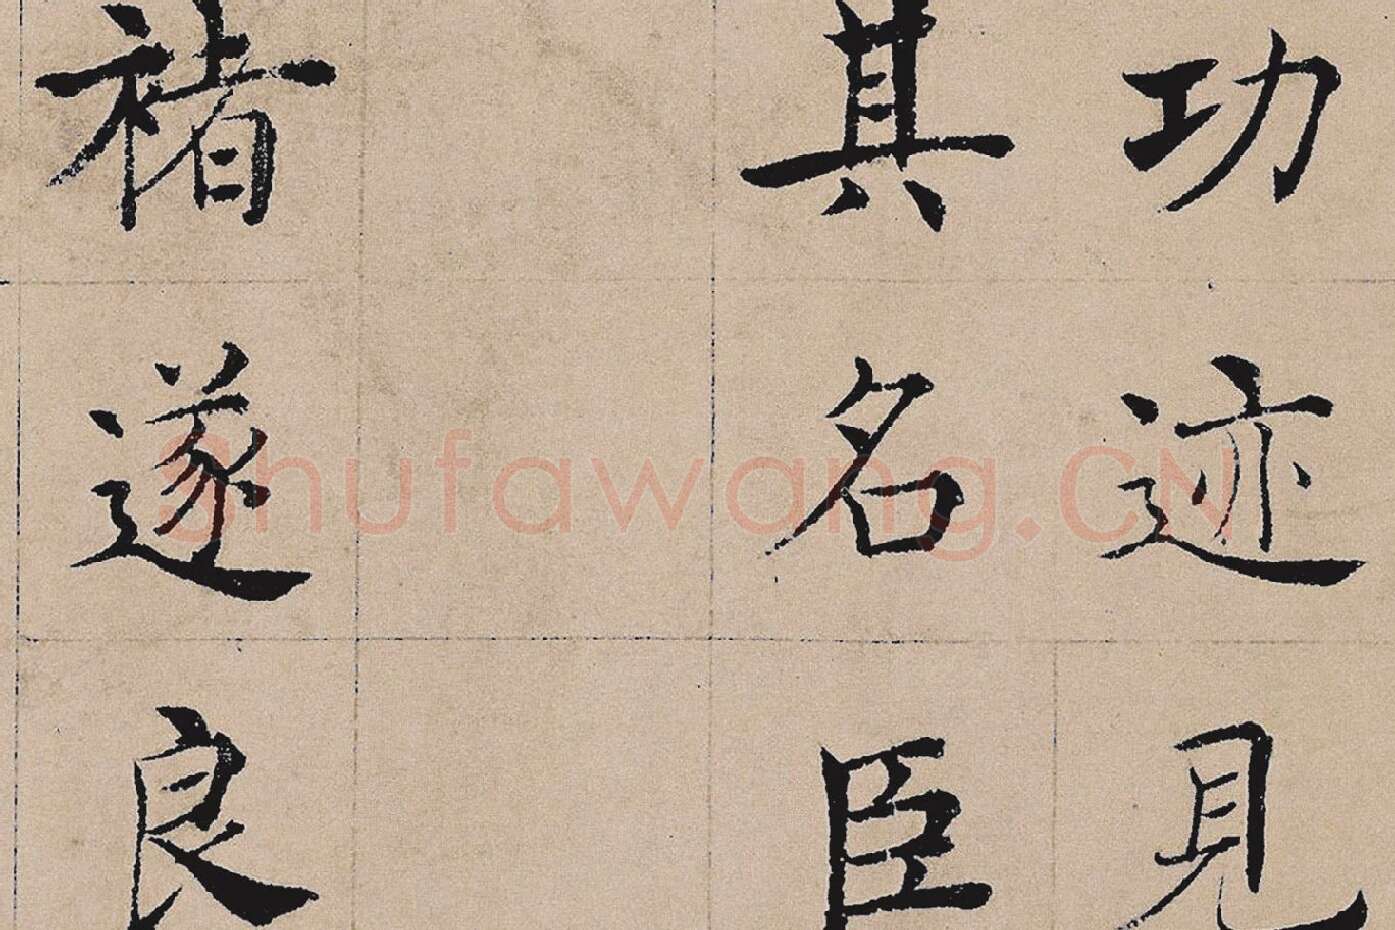 功迹見
其名臣
褚遂良
Shufawang.CN